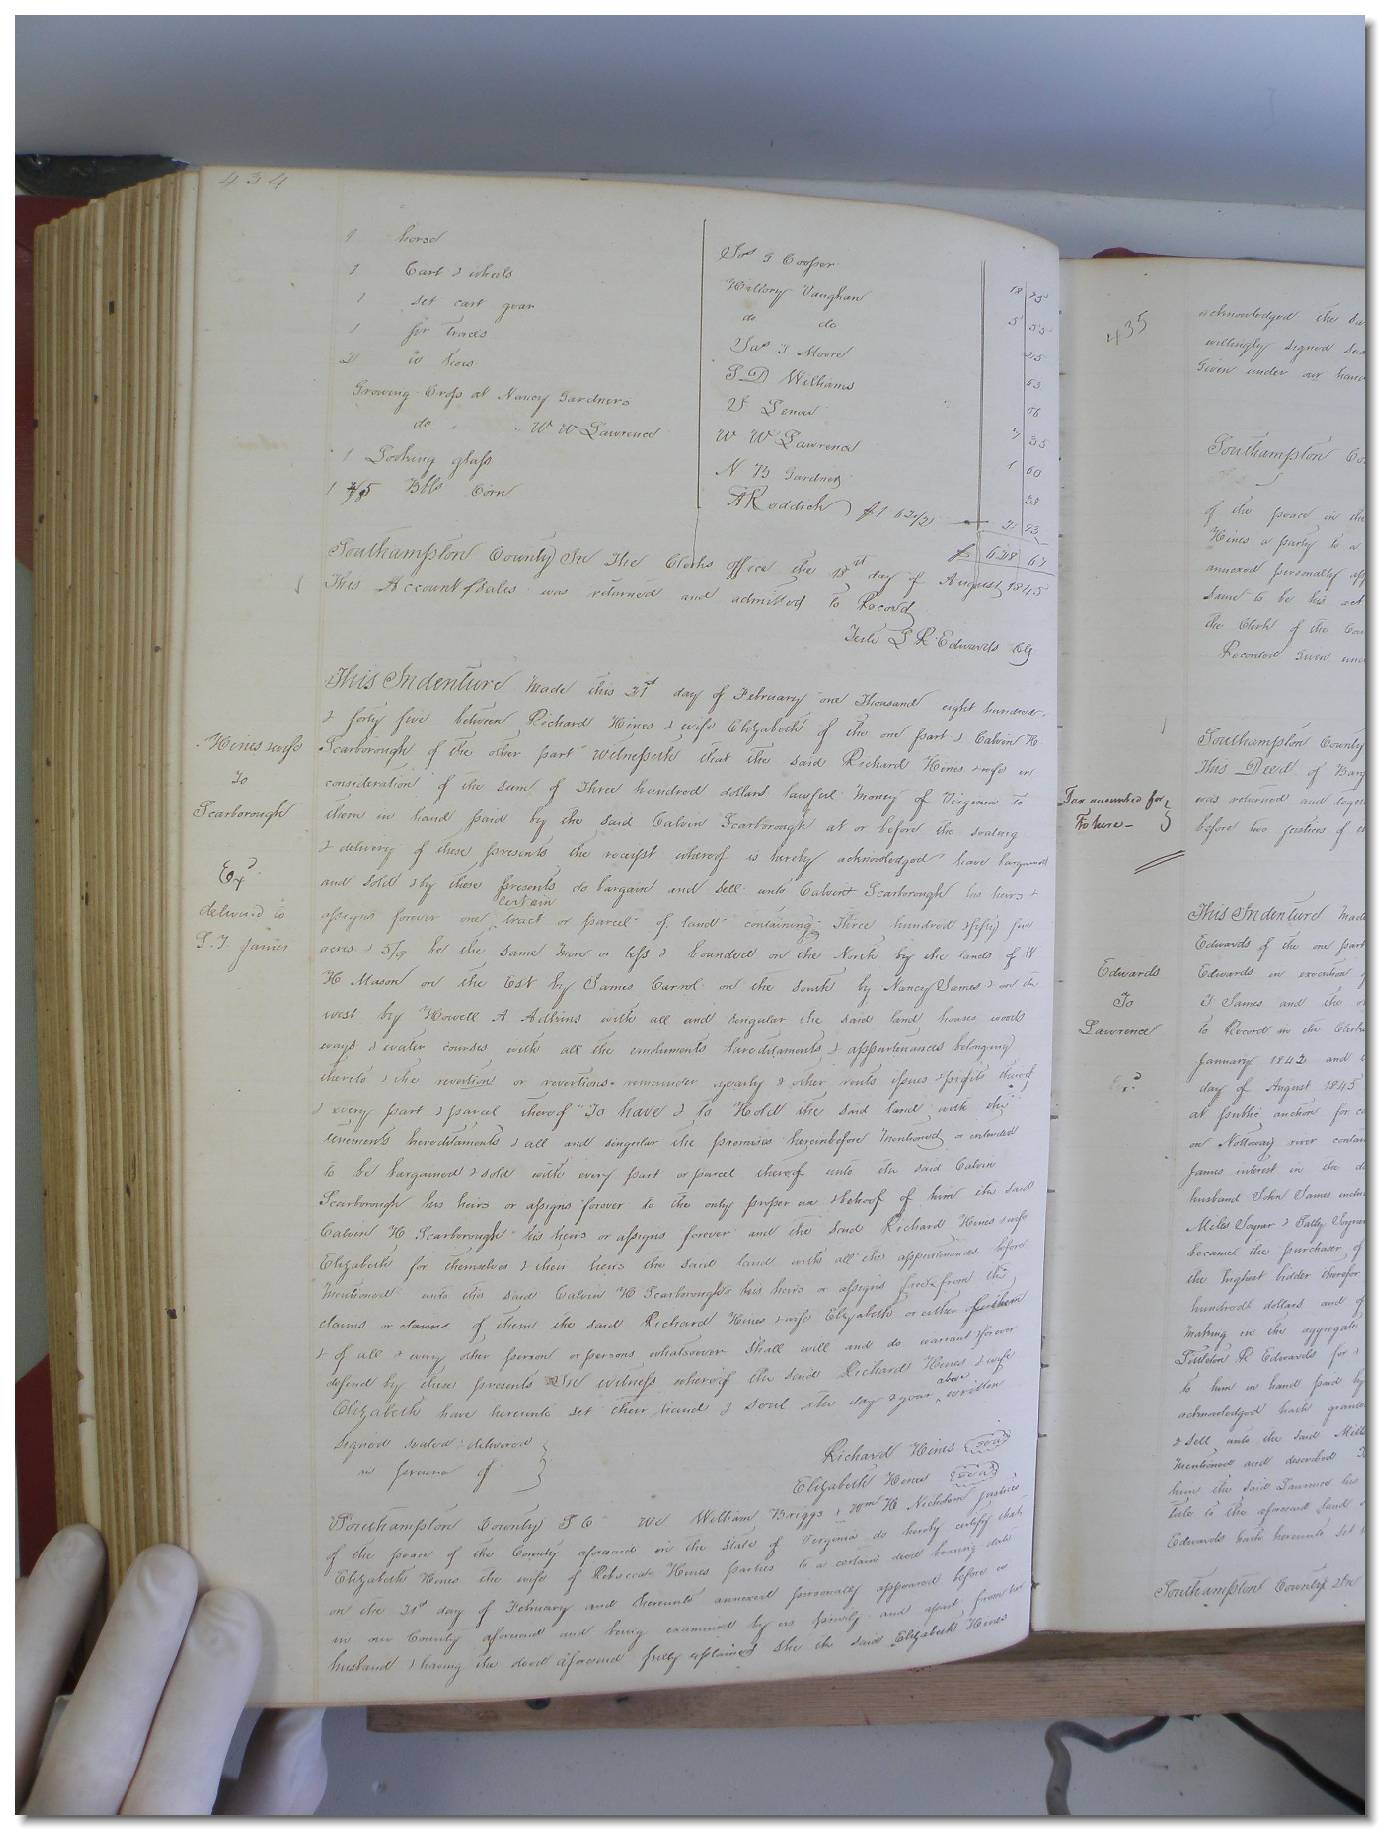 434
1 horse Jos G Cooper 18 25
1 Cart & wheels Hillory Vaughan 5 55
1 set cart gear do do 25
1 pr traces Jas J Moore 63
2 w hoes S D Williams 76
Growing Crop at Nancy Gardners 7 35
do W W Lawrence W W Lawrence 1 60
1 Looking glass N B Gardner
1 Bbls Corn A Riddick
$ 628 67
Southampton County In The Clerks office the 18st day of August 1845
This Account of Sales was returned and admitted to Record
Teste L R Edwards Clk
Hines & wife
To
Scarborough
Exd
delivered to
This Indenture Made this 21st day of February one Thousand eight hundred
& forty five between Richard Hines & wife Elizabeth of the one part & Calvin H
Scarborough of the other part Witnesseth that the said Richard Hines & wife in
consideration of the sum of Three hundred dollars lawful Money of Virginia to
them in hand paid by the said Calvin Scarborough at or before the sealing
& delivery of these presents the receipt whereof is hereby acknowledged have bargained
and sold & by these presents do bargain and sell unto Calvin Scarborough his heirs &
assigns forever one certain tract or parcel of land containing Three hundred & fifty five
acres & 5/9 be the same more or less & bounded on the North by the lands of W
H Mason on the Est by James Carrol on the south by Nancy James & on the
west by Howell A Adkins with all and singular the said land houses woods
ways & water courses with all the emoluments hereditaments & appurtenances belonging
thereto & the revertion or revertions remainder yearly & other rents issues & profits thereof
& every part & parcel thereof To have & to Hold the said land with the
tenements hereditaments & all and singular the premises hereinbefore Mentioned or intended
to be bargained & sold with every part or parcel thereof unto the said Calvin
Scarborough his heirs or assigns forever to the only proper use & behoof of him the said
Calvin H Scarborough his heirs or assigns forever and the said Richard Hines & wife
Elizabeth for themselves & their heirs the said land with all the appurtenances before
Mentioned unto the said Calvin H Scarborough his heirs or assigns free from the
claims or claims of them the said Richard Hines & wife Elizabeth or either of them
& of all & every other person or persons whatsoever Shall will and do warrant & forever
defend by these presents In witness whereof the said Richard Hines & wife
Elizabeth have hereunto set their hand & seal the day & year above written
Signed sealed & delivered
in presence of
Richard Hines seal
Elizabeth Hines seal
Southampton County S C We William Briggs & Wm H Nicholson justices
of the peace of the County aforesaid in the State of Virginia do hereby certify that
Elizabeth Hines the wife of Hines parties to a certain deed bearing date
on the 21st day of February and hereunto annexed personally appeared before us
in our County aforesaid and being examined by us privily and apart from her
husband & having the deed aforesaid fully explained She the said Elizabeth Hines
435
acknowledged the
willingly signed
Given under our hand
Southampton
of the peace in the
Hines a party to a
annexed personally
same to be his act
the Clerk of the
Recorded Given
Southampton County
This Deed of
Tax accounted for
was returned and
before two justices of
This Indenture Made
Edwards of the one part
Edwards
To
Lawrence
Exd
Edwards in execution
T James and the
to Record in the
January 1842 and
day of August 1845
at public auction for
on Nottoway river
James interest in the
husband John James
became the purchaser
the highest bidder therefor
hundred dollars and
making in the aggregate
Edwards for
to him in hand paid by
acknowledged hath
& sell unto the said
Mentioned and described
him the said
title to the aforesaid land
Edwards hath hereunto set
Southampton County In